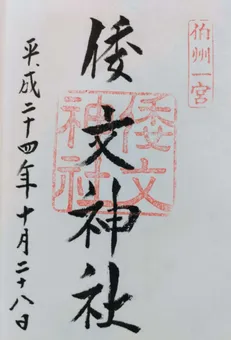 伯州一宮
倭文神社
倭文神社
平成二十四年十月二十八日